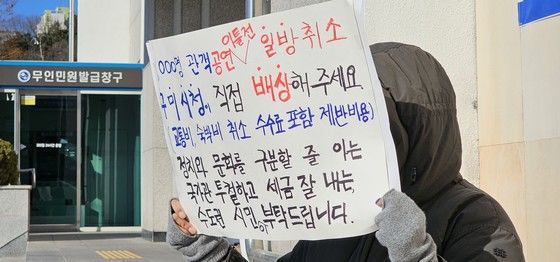 무인민원발급창구
이틀전
000명 관객 공연 일방취소
구미시청이 직접 배상해 주세요.
교통비, 숙박비 취소 수수료 포함 제반비용)
정치와 문화를 구분할 줄 아는
국가관 투철하고 세금 잘 내는,
수도권 시민이 부탁드립니다.